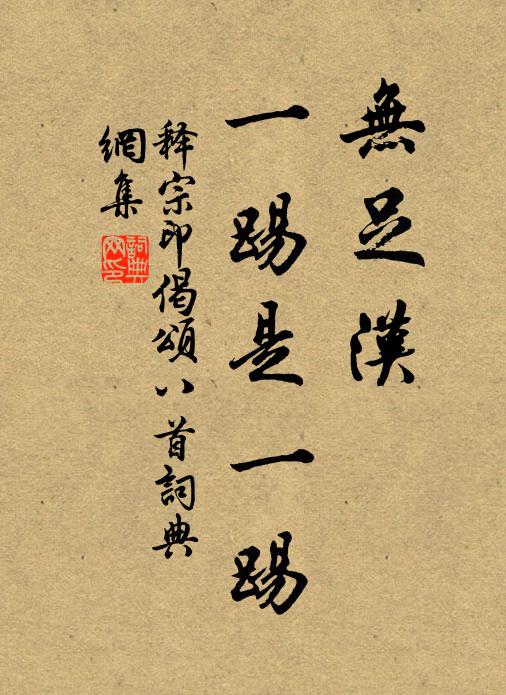 無足漢
一踢是一踢
释宗印偈頌八首詞典
網集
詞典
网印